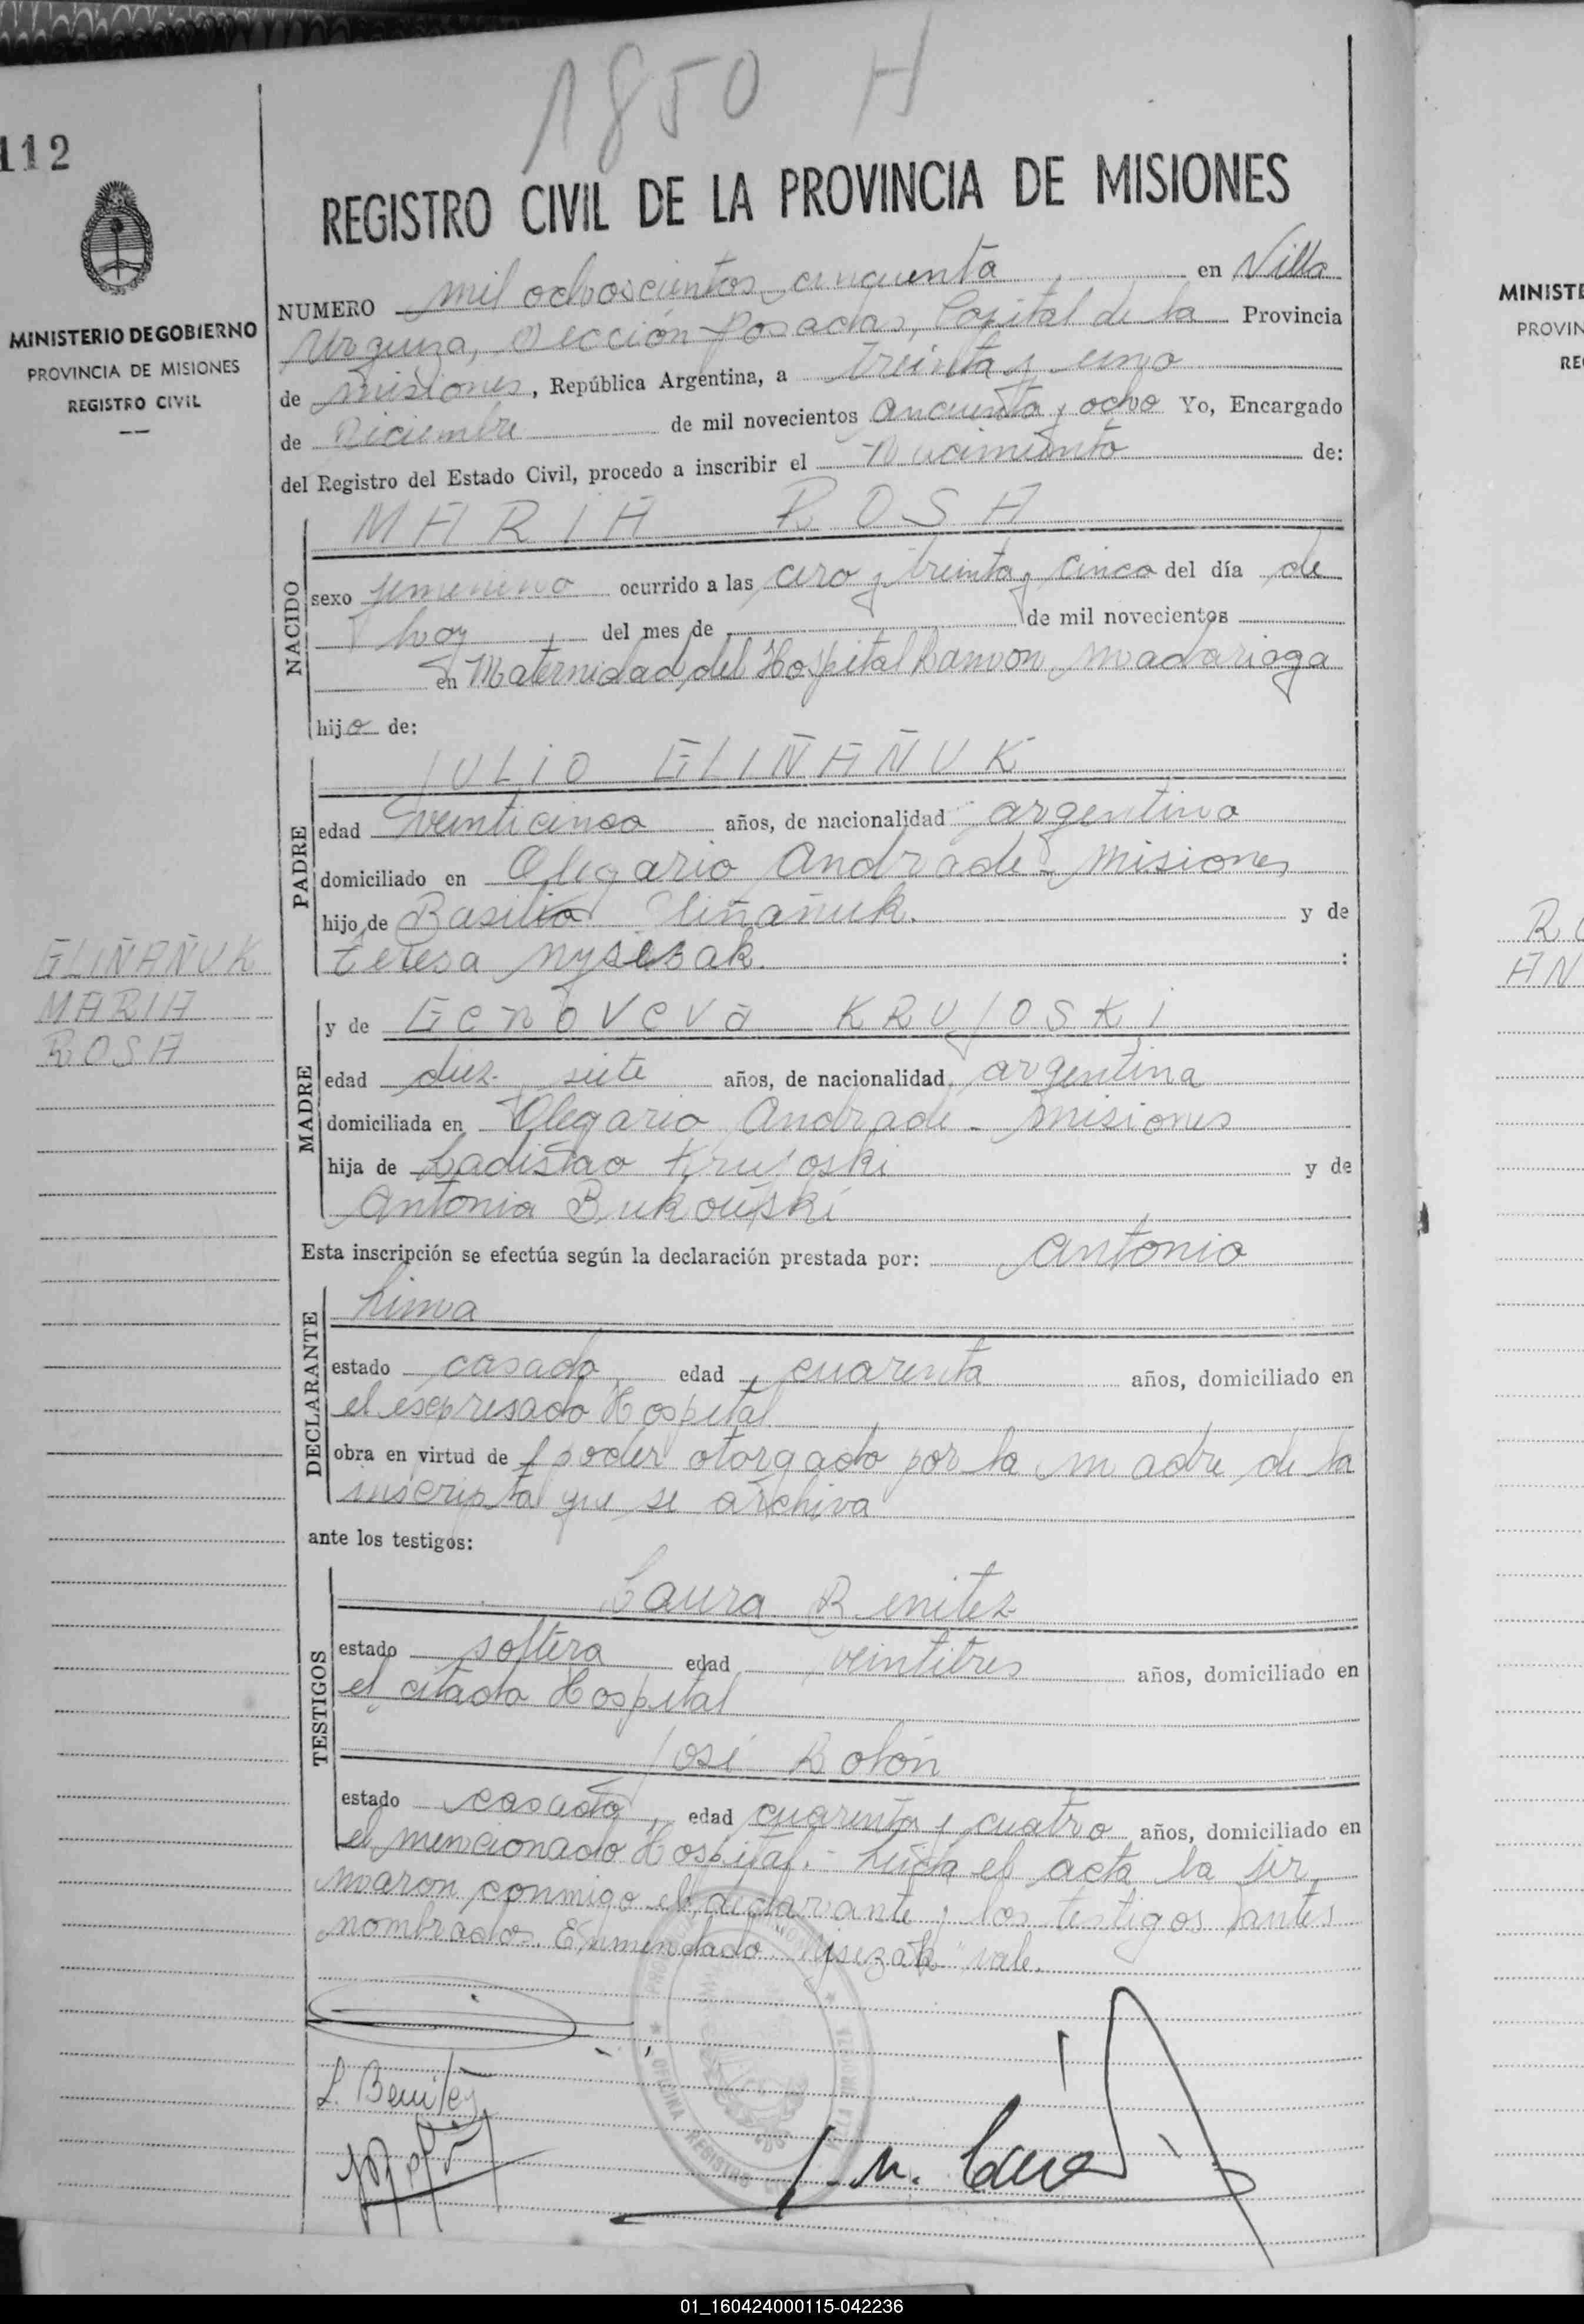 1850 H
112
REGISTRO CIVIL DE LA PROVINCIA DE MISIONES
MINISTERIO DE GOBIERNO
PROVINCIA DE MISIONES
REGISTRO CIVIL
NUMERO mil ochoscientos cincuenta en Villa
Urquiza, Sección Posadas, Capital de la Provincia
de Misiones, República Argentina, a treinta y uno
de Diciembre de mil novecientos cincuenta y ocho Yo, Encargado
del Registro del Estado Civil, procedo a inscribir el Nacimiento de:
NACIDO
MARIA ROSA
sexo femenino ocurrido a las cero y treinta y cinco del día de
hoy del mes de de mil novecientos
en Maternidad del Hospital Ramon Madariaga
hijo de:
PADRE
JULIO GLIÑAÑUK
edad veinticinco años, de nacionalidad argentino
domiciliado en Olegario Andrade - Misiones
hijo de Basilio Gliñañuk. y de
teresa nysezak. :
GLIÑAÑUK
MARIA
ROSA
MADRE
y de GENOVEVA KRUJOSKI
edad diez y siete años, de nacionalidad argentina
domiciliada en Olegario Andrade - Misiones
hija de Ladislao Krujoski y de
Antonia Bukouski
Esta inscripción se efectúa según la declaración prestada por: Antonio
DECLARANTE
Lima
estado casado, edad cuarenta años, domiciliado en
el esepresado Hospital
obra en virtud de poder otorgado por la madre de la
inscripta que se archiva
ante los testigos:
TESTIGOS
Laura Benitez
estado soltera edad veintitres años, domiciliado en
el citado Hospital
José Bolón
estado casado, edad cuarenta y cuatro años, domiciliado en
el mencionado Hospital.- Leida el acta la fir
maron conmigo el declarante y los testigos antes
nombrados. Enmendado "nysezak" vale.
L. Benitez
OFICINA REGISTRO
MINISTE
PROVIN
RE
RO
AN
01_160424000115-042236